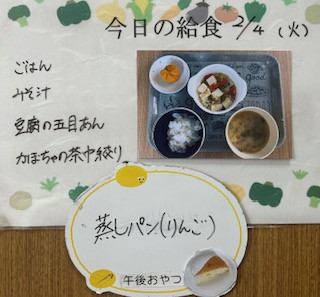 今日の給食 2/4 (火)
ごはん
みそ汁
豆腐の五目あん
かぼちゃの茶巾絞り
蒸しパン(りんご)
午後おやつ